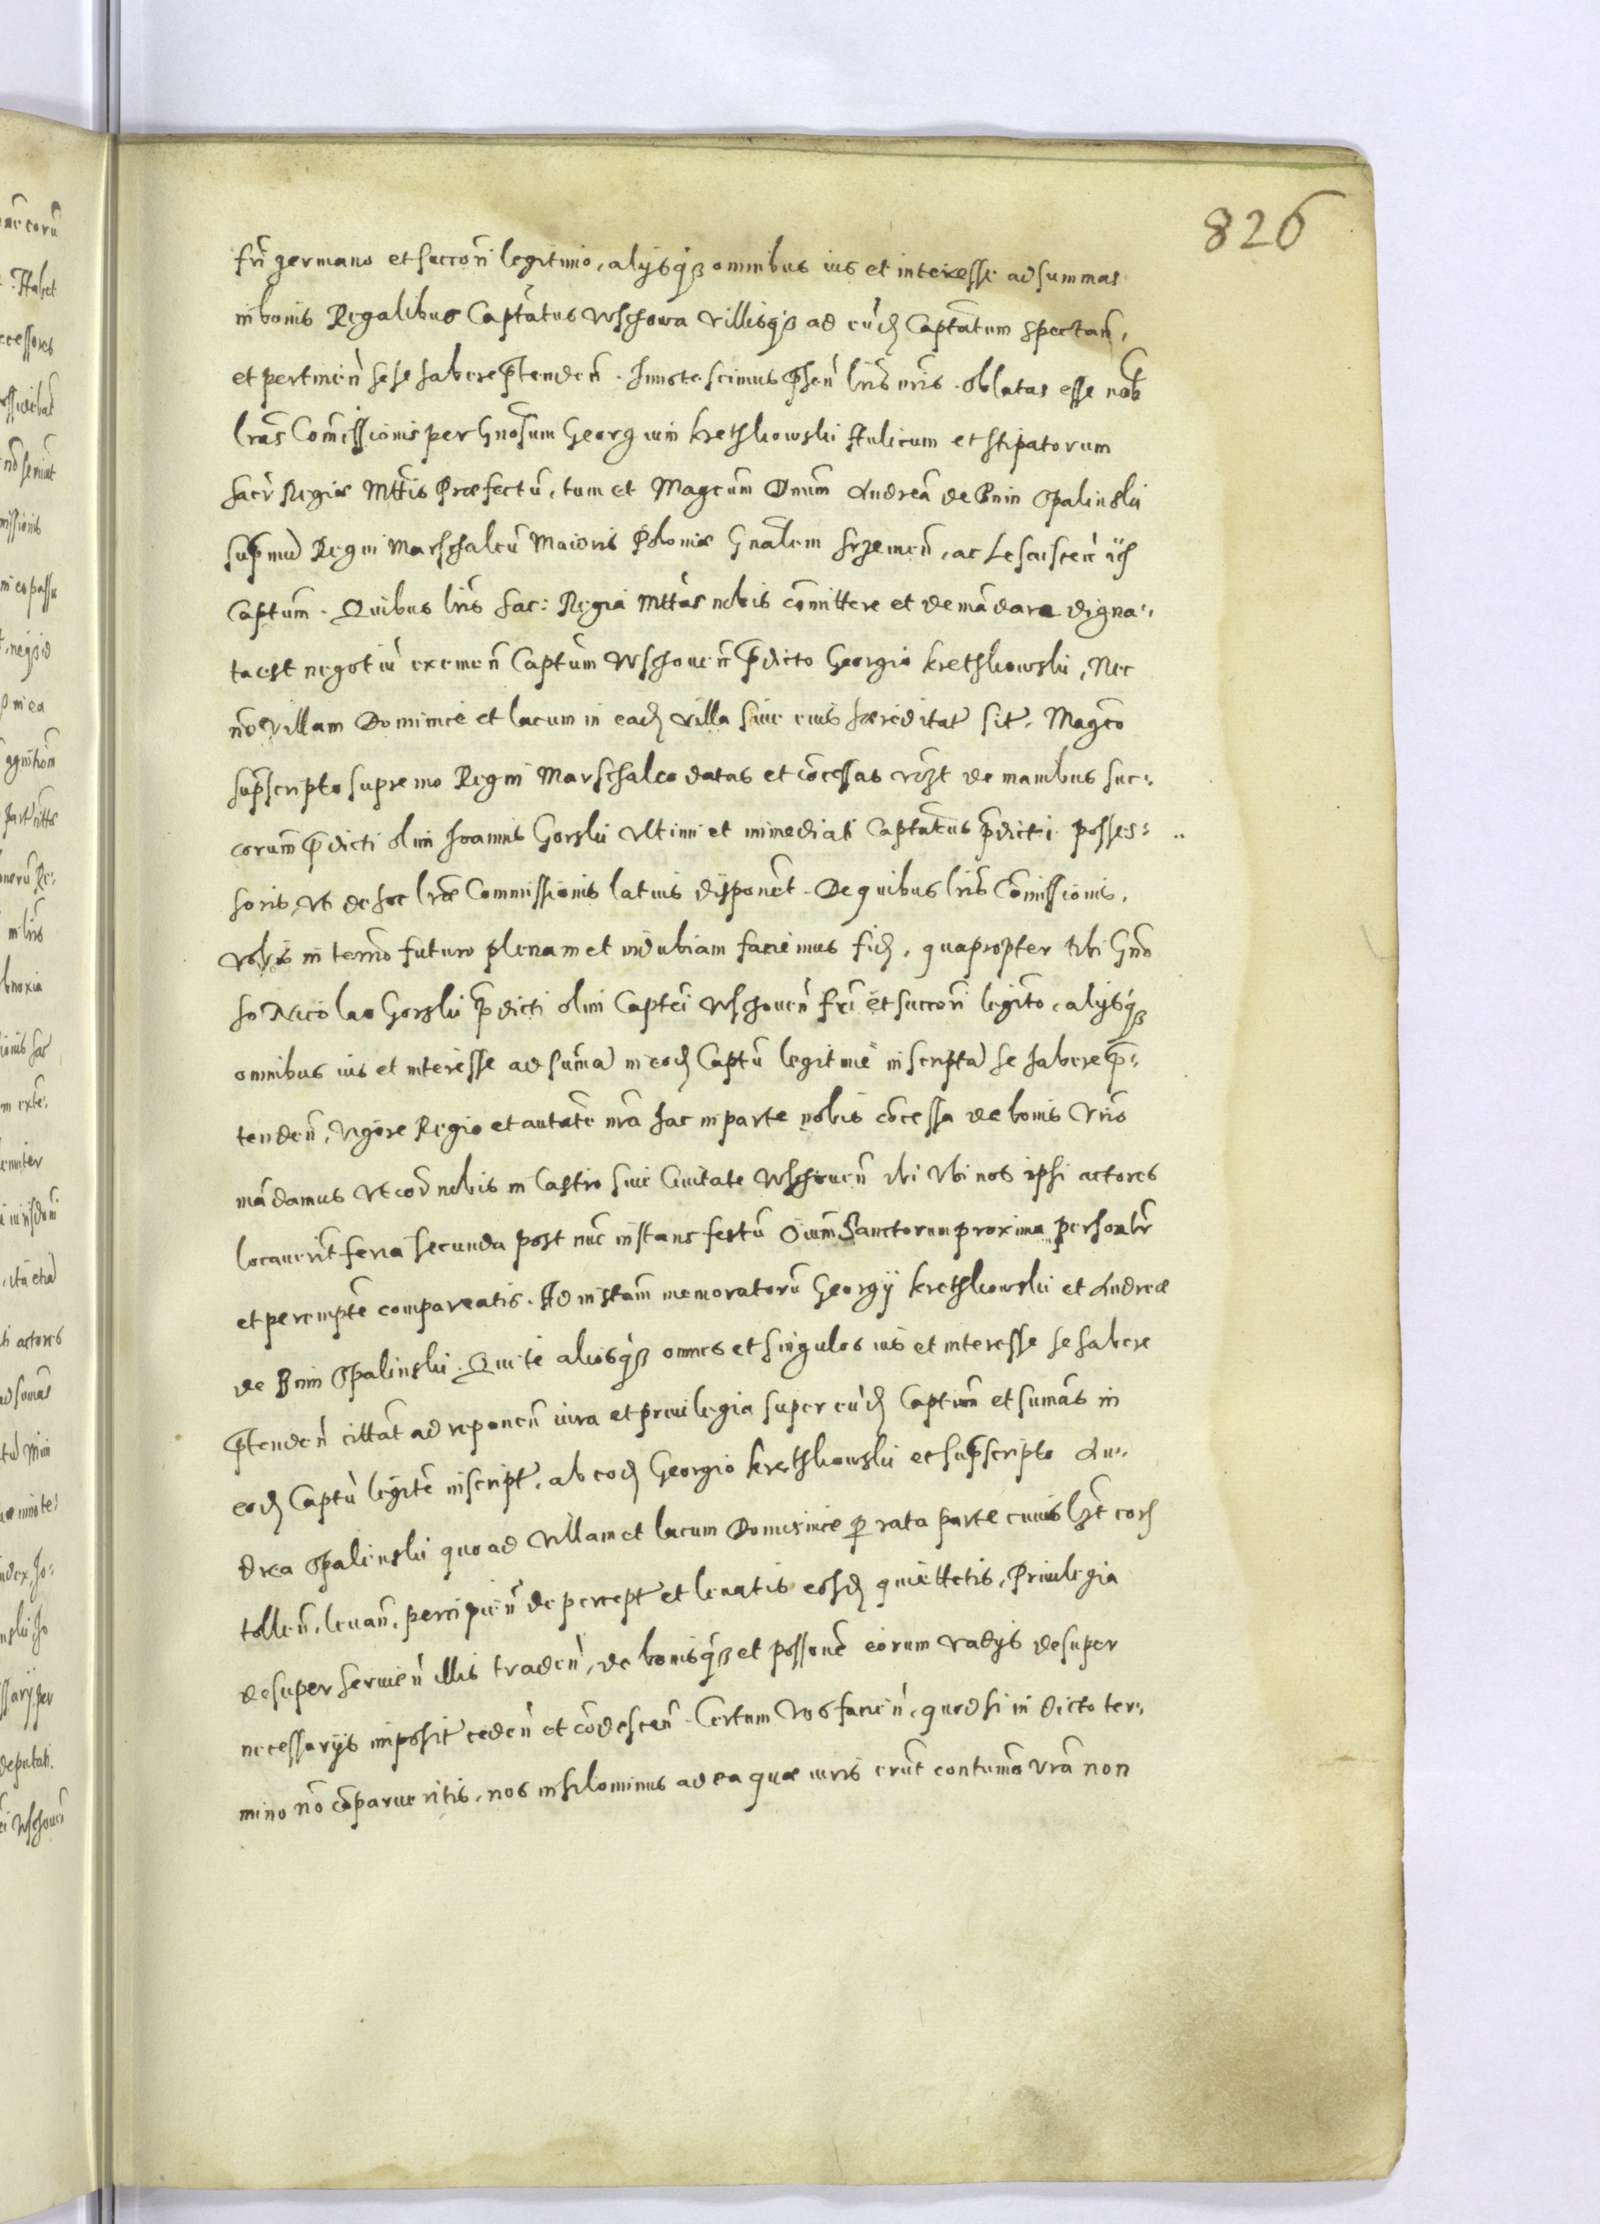 826
fri germano et succori legitimo, alysq3 omnibus ius et interesse ad summas
in bonis Regalibus Captatus Wschowa villisq3 ad eud Captatum spectan,
et pertinen sese habere ptenden. Innotescimus phen lris nris. oblatas esse nob
lras Comissionis per Gnosum Georgium Krethkowski Aulicum et Stipatorum
Sacr Regiae Mttis Praefectu, tum et Magcum Dnum Andrea de Bnin Opalinski
supmu Regni Marschalcu Maioris Poloniae Gnalem Srzemen, ac
Captum. Quibus lris Sac: Regia Mttas nobis comittere et demadare digna:,
ta est negotiu exemen Captum Wschouen pdicto Georgio Krethkowski, Nec
no villam Domimce et lacum in ead villa siue eius haereditat sit. Magco
supscripto supremo Regni Marschalco datas et concessas de manibus suc:
corum pdicti olim Joannis Gorski vltimi et immediati Captatus pdicti posses:
soris, vt de hoc lrae Commissionis latius disponet. De quibus lris Comissionis,
vobis in termo futuro plenam et indubiam faciemus fid, quapropter tibi Gno
so Nicolao Gorski pdicti olim Captei Wschouen fri et succori legito, alysq3
omnibus ius et interesse ad suma in eod Captu legitime inscripta se habere p:
tenden, vigore Regio et autate nra hac in parte nobis concessa de bonis vris
madamus vt cor nobis in Castro siue Ciuitate Wschouen ibi vbi nos ipsi actores
locauerit feria secunda post nuc instans festu Oium Sanctorum proxima personlr
et perempte compareatis. Ad instam memoratoru Georgij Krethkowski et Andreae
de Bnin Opalinski. Qui te aliosq3 omnes et singulos ius et interesse se habere
ptenden cittat ad reponen iura et priuilegia super eud Captum et sumas in
eod Captu legite inscript, ab eod Georgio Krethkowski et supscripto An,,
drea Opalinski quo ad villam et lacum p rata parte cuius
tollen, leuan, percipien de percept et leuatis eosd quiettetis, Priuilegia
desuper seruien illis traden, de bonisq3 et possone eorum vadys desuper
necessarys imposit ceden et codescen. Certum vos facien, quod si in dicto ter:
mino no coparueritis, nos nihilominus ad ea quae iuris erut contumo vra non